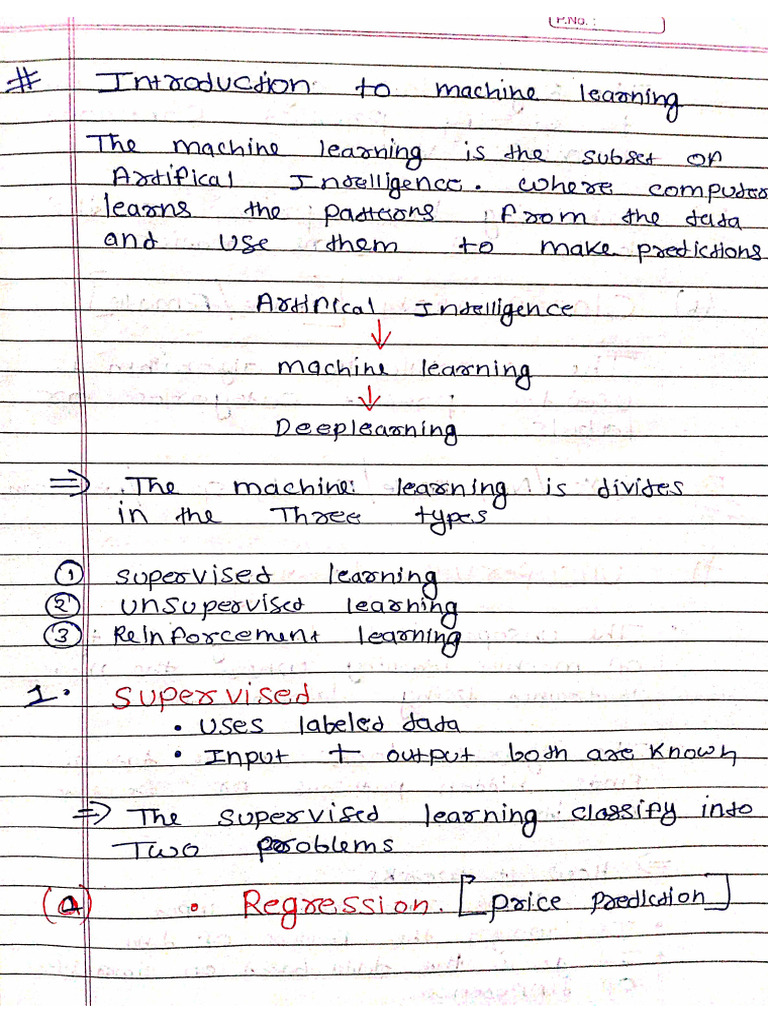 P.No. :
# Introduction to machine learning
The machine learning is the subset of
Artifical Intelligence. where computer
learns the patterns from the data
and use them to make predictions
Artifical Intelligence
↓
machine learning
↓
Deeplearning
⇒ The machine learning is divides
in the Three types
① supervised learning
② unsupervised learning
③ Reinforcement learning
1. Supervised
• Uses labeled data
• Input + output both are known
⇒ The supervised learning classify into
Two problems
(a) • Regression. [price prediction]